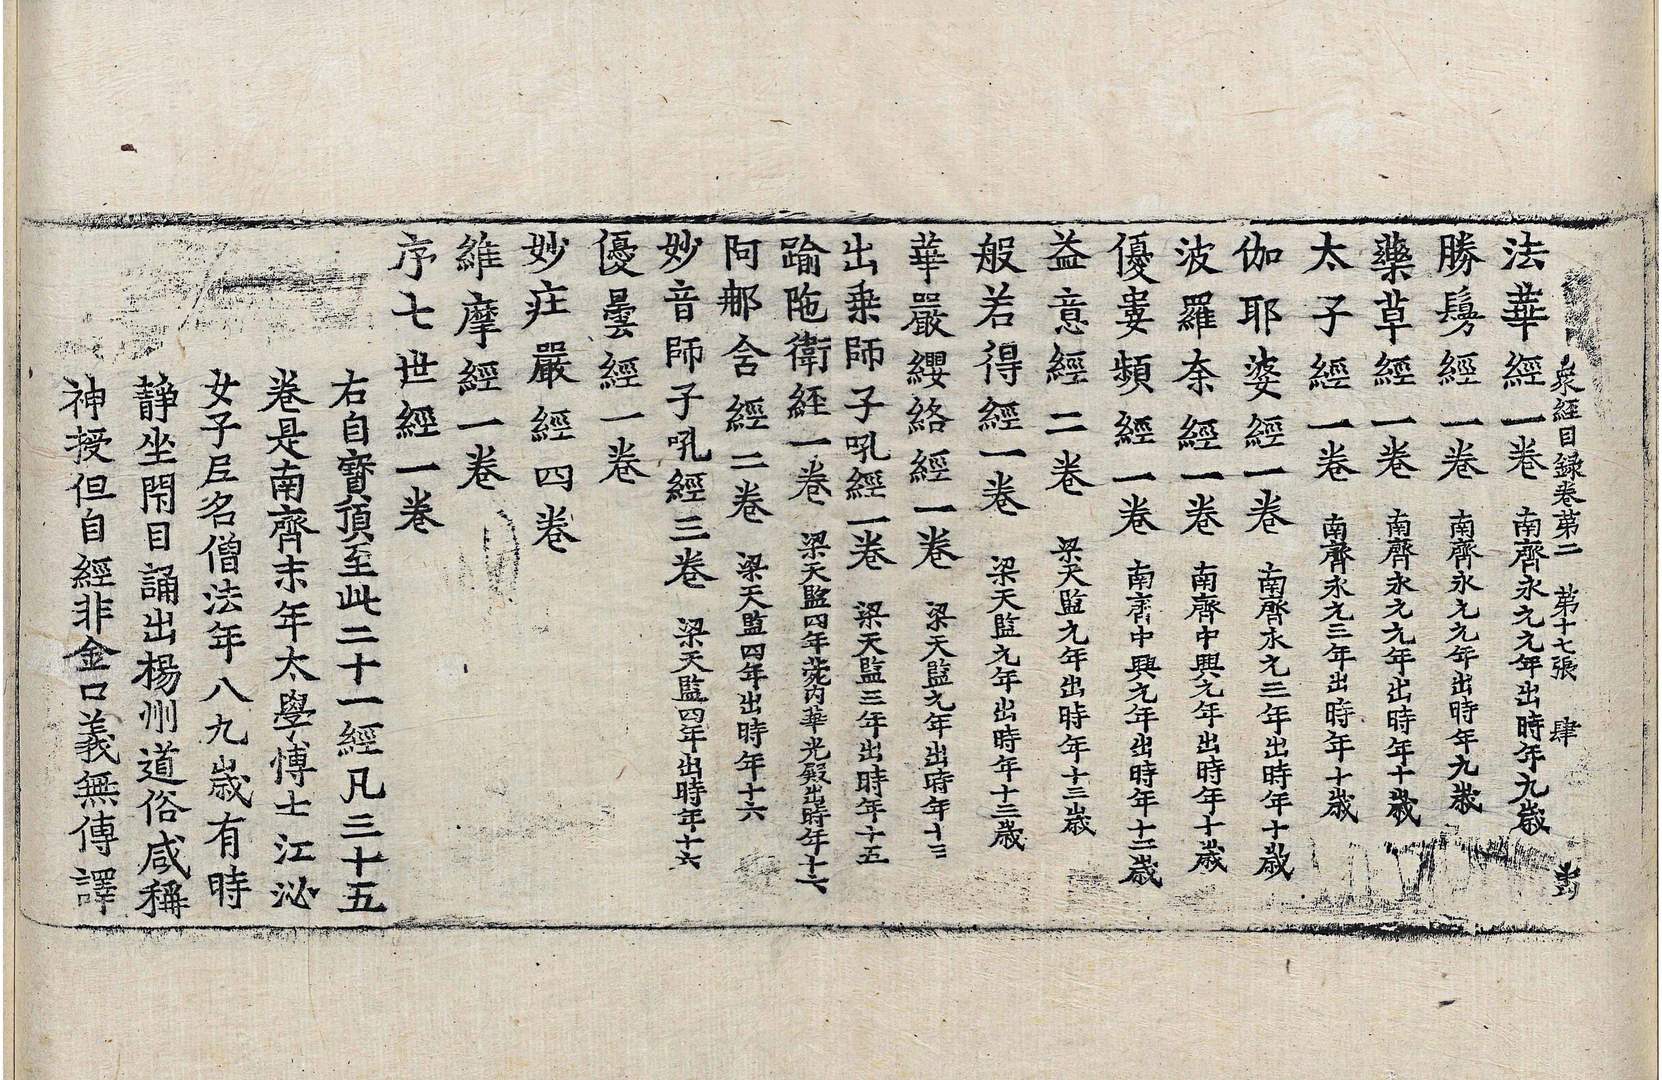 衆經目録卷第二　第十七張　肆
法華經一卷　南齊永元元年出時年九歲
勝鬘經一卷　南齊永元元年出時年九歲
藥草經一卷　南齊永元元年出時年十歲
太子經一卷　南齊永元三年出時年十歲
伽耶婆經一卷　南齊永元三年出時年十歲
波羅奈經一卷　南齊中興元年出時年十歲
優婁頻經一卷　南齊中興元年出時年十二歲
益意經二卷　梁天監元年出時年十三歲
般若得經一卷　梁天監元年出時年十三歲
華嚴纓絡經一卷　梁天監元年出時年十三
出乗師子吼經一卷　梁天監三年出時年十五
踰陁衛經一卷　梁天監四年臺内華光殿出時年十六
阿那含經二卷　梁天監四年出時年十六
妙音師子吼經三卷　梁天監四年出時年十六
優曇經一卷
妙疘嚴經四卷
維摩經一卷
序七世經一卷
右自寳頂至此二十一經凡三十五
卷是南齊末年太學博士江泌
女子尼名僧法年八九歲有時
静坐閇目誦出楊州道俗咸稱
神授但自經非金口義無傳譯